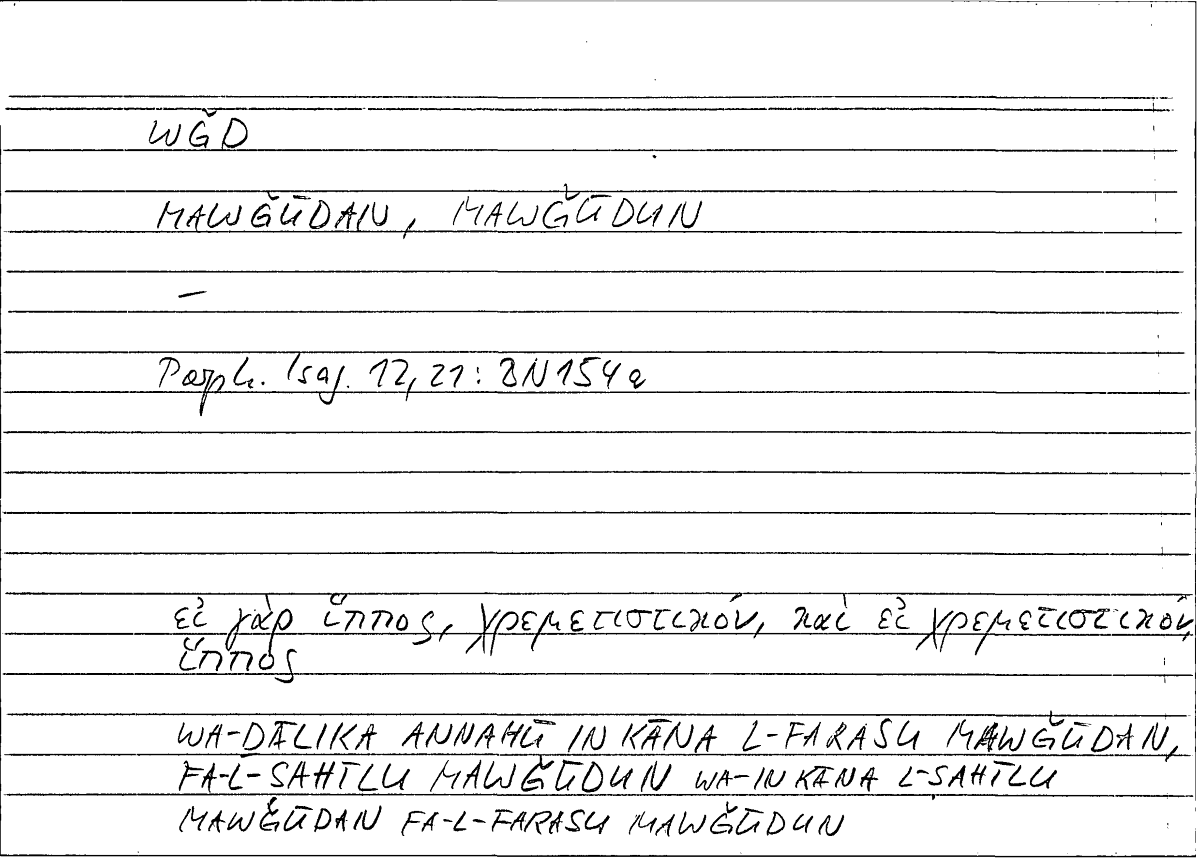 WǦD
MAWǦŪDAN, MAWǦŪDUN
—
Porph. Isag. 12, 21: BN154a
εἰ γὰρ ἵππος, χρεμετιστικόν, καὶ εἰ χρεμετιστικόν,
ἵππος
WA-DĀLIKA ANNAHŪ IN KĀNA L-FARASU MAWǦŪDAN,
FA-L-SAHĪLU MAWǦŪDUN WA-IN KĀNA L-SAHĪLU
MAWǦŪDAN FA-L-FARASU MAWǦŪDUN